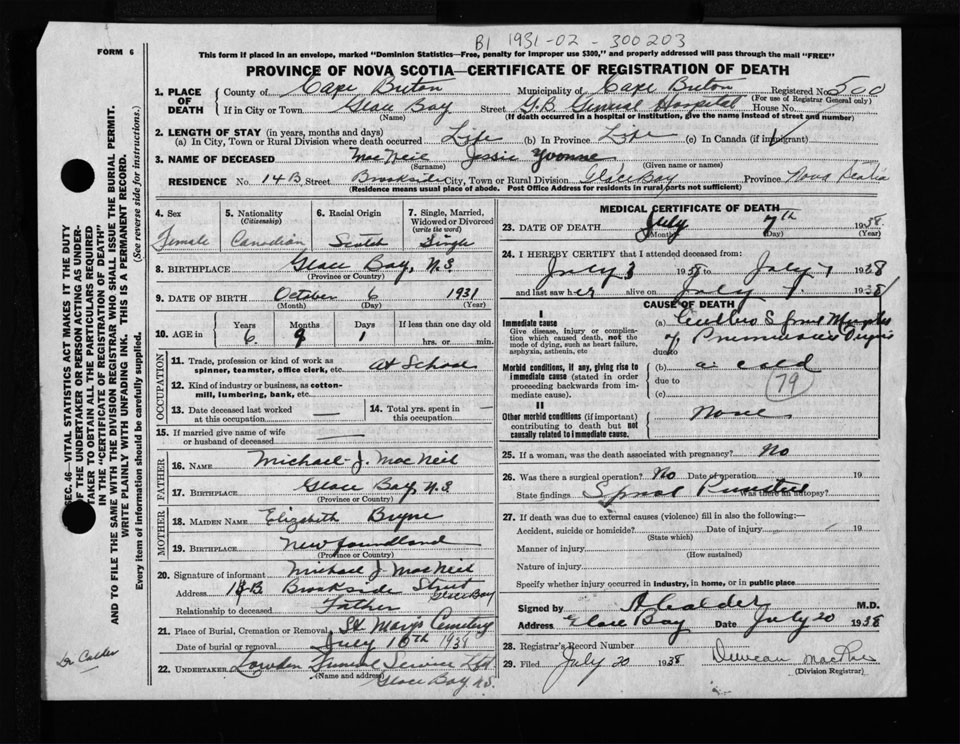 B1 1931-02-300203
FORM 6
This form if placed in an envelope, marked "Dominion Statistics—Free, penalty for improper use $300," and properly addressed will pass through the mail "FREE"
PROVINCE OF NOVA SCOTIA—CERTIFICATE OF REGISTRATION OF DEATH
SEC. 46—VITAL STATISTICS ACT MAKES IT THE DUTY
OF THE UNDERTAKER OR PERSON ACTING AS UNDER-
TAKER TO OBTAIN ALL THE PARTICULARS REQUIRED
IN THE "CERTIFICATE OF REGISTRATION OF DEATH"
AND TO FILE THE SAME WITH THE DIVISION REGISTRAR WHO SHALL ISSUE THE BURIAL PERMIT.
WRITE PLAINLY WITH UNFADING INK. THIS IS A PERMANENT RECORD.
Every item of information should be carefully supplied. (See reverse side for instructions.)
Dr Calder
1. PLACE OF DEATH
County of Cape Breton Municipality of Cape Breton Registered No. 500
(For use of Registrar General only)
If in City or Town Glace Bay Street G.B. General Hospital House No.
(Name) (If death occurred in a hospital or institution, give the name instead of street and number)
2. LENGTH OF STAY (in years, months and days)
(a) In City, Town or Rural Division where death occurred Life (b) In Province Life (c) In Canada (if immigrant)
3. NAME OF DECEASED MacNeil Jessie Yvonne
(Surname) (Given name or names)
RESIDENCE No. 14B Street Brookside City, Town or Rural Division Glace Bay Province Nova Scotia
(Residence means usual place of abode. Post Office Address for residents in rural parts not sufficient)
4. Sex Female
5. Nationality (Citizenship) Canadian
6. Racial Origin Scotch
7. Single, Married, Widowed or Divorced (write the word) Single
8. BIRTHPLACE Glace Bay, N.S.
(Province or Country)
9. DATE OF BIRTH October 6 1931
(Month) (Day) (Year)
10. AGE in Years 6 Months 9 Days 1 If less than one day old hrs. or min.
OCCUPATION
11. Trade, profession or kind of work as spinner, teamster, office clerk, etc. at School
12. Kind of industry or business, as cotton-mill, lumbering, bank, etc.
13. Date deceased last worked at this occupation
14. Total yrs. spent in this occupation
15. If married give name of wife or husband of deceased
FATHER
16. NAME Michael J. MacNeil
17. BIRTHPLACE Glace Bay, N.S
(Province or Country)
MOTHER
18. MAIDEN NAME Elizabeth Bryne
19. BIRTHPLACE Newfoundland
(Province or Country)
20. Signature of informant Michael J. MacNeil
Address Brookside Street Glace Bay
Relationship to deceased Father
21. Place of Burial, Cremation or Removal St Marys Cemetery
Date of burial or removal July 10th 1938
22. UNDERTAKER Lowden Funeral Service Ltd
(Name and address) Glace Bay N.S.
MEDICAL CERTIFICATE OF DEATH
23. DATE OF DEATH July 7th 1938
(Month) (Day) (Year)
24. I HEREBY CERTIFY that I attended deceased from:
July 3 1938 to July 7 1938
and last saw her alive on July 7 1938
CAUSE OF DEATH
I
Immediate cause
Give disease, injury or complication which caused death, not the mode of dying, such as heart failure, asphyxia, asthenia, etc
(a)
due to
Morbid conditions, if any, giving rise to immediate cause (stated in order proceeding backwards from immediate cause).
(b) a cold
due to 79
(c)
II
Other morbid conditions (if important) contributing to death but not causally related to immediate cause.
None
25. If a woman, was the death associated with pregnancy? No
26. Was there a surgical operation? No Date of operation 19
State findings Spinal Puncture Was there an autopsy?
27. If death was due to external causes (violence) fill in also the following:—
Accident, suicide or homicide? Date of injury 19
(State which)
Manner of injury
(How sustained)
Nature of injury
Specify whether injury occurred in industry, in home, or in public place
Signed by A Calder M.D.
Address Glace Bay Date July 20 1938
28. Registrar's Record Number
29. Filed July 20 1938 Duncan
(Division Registrar)